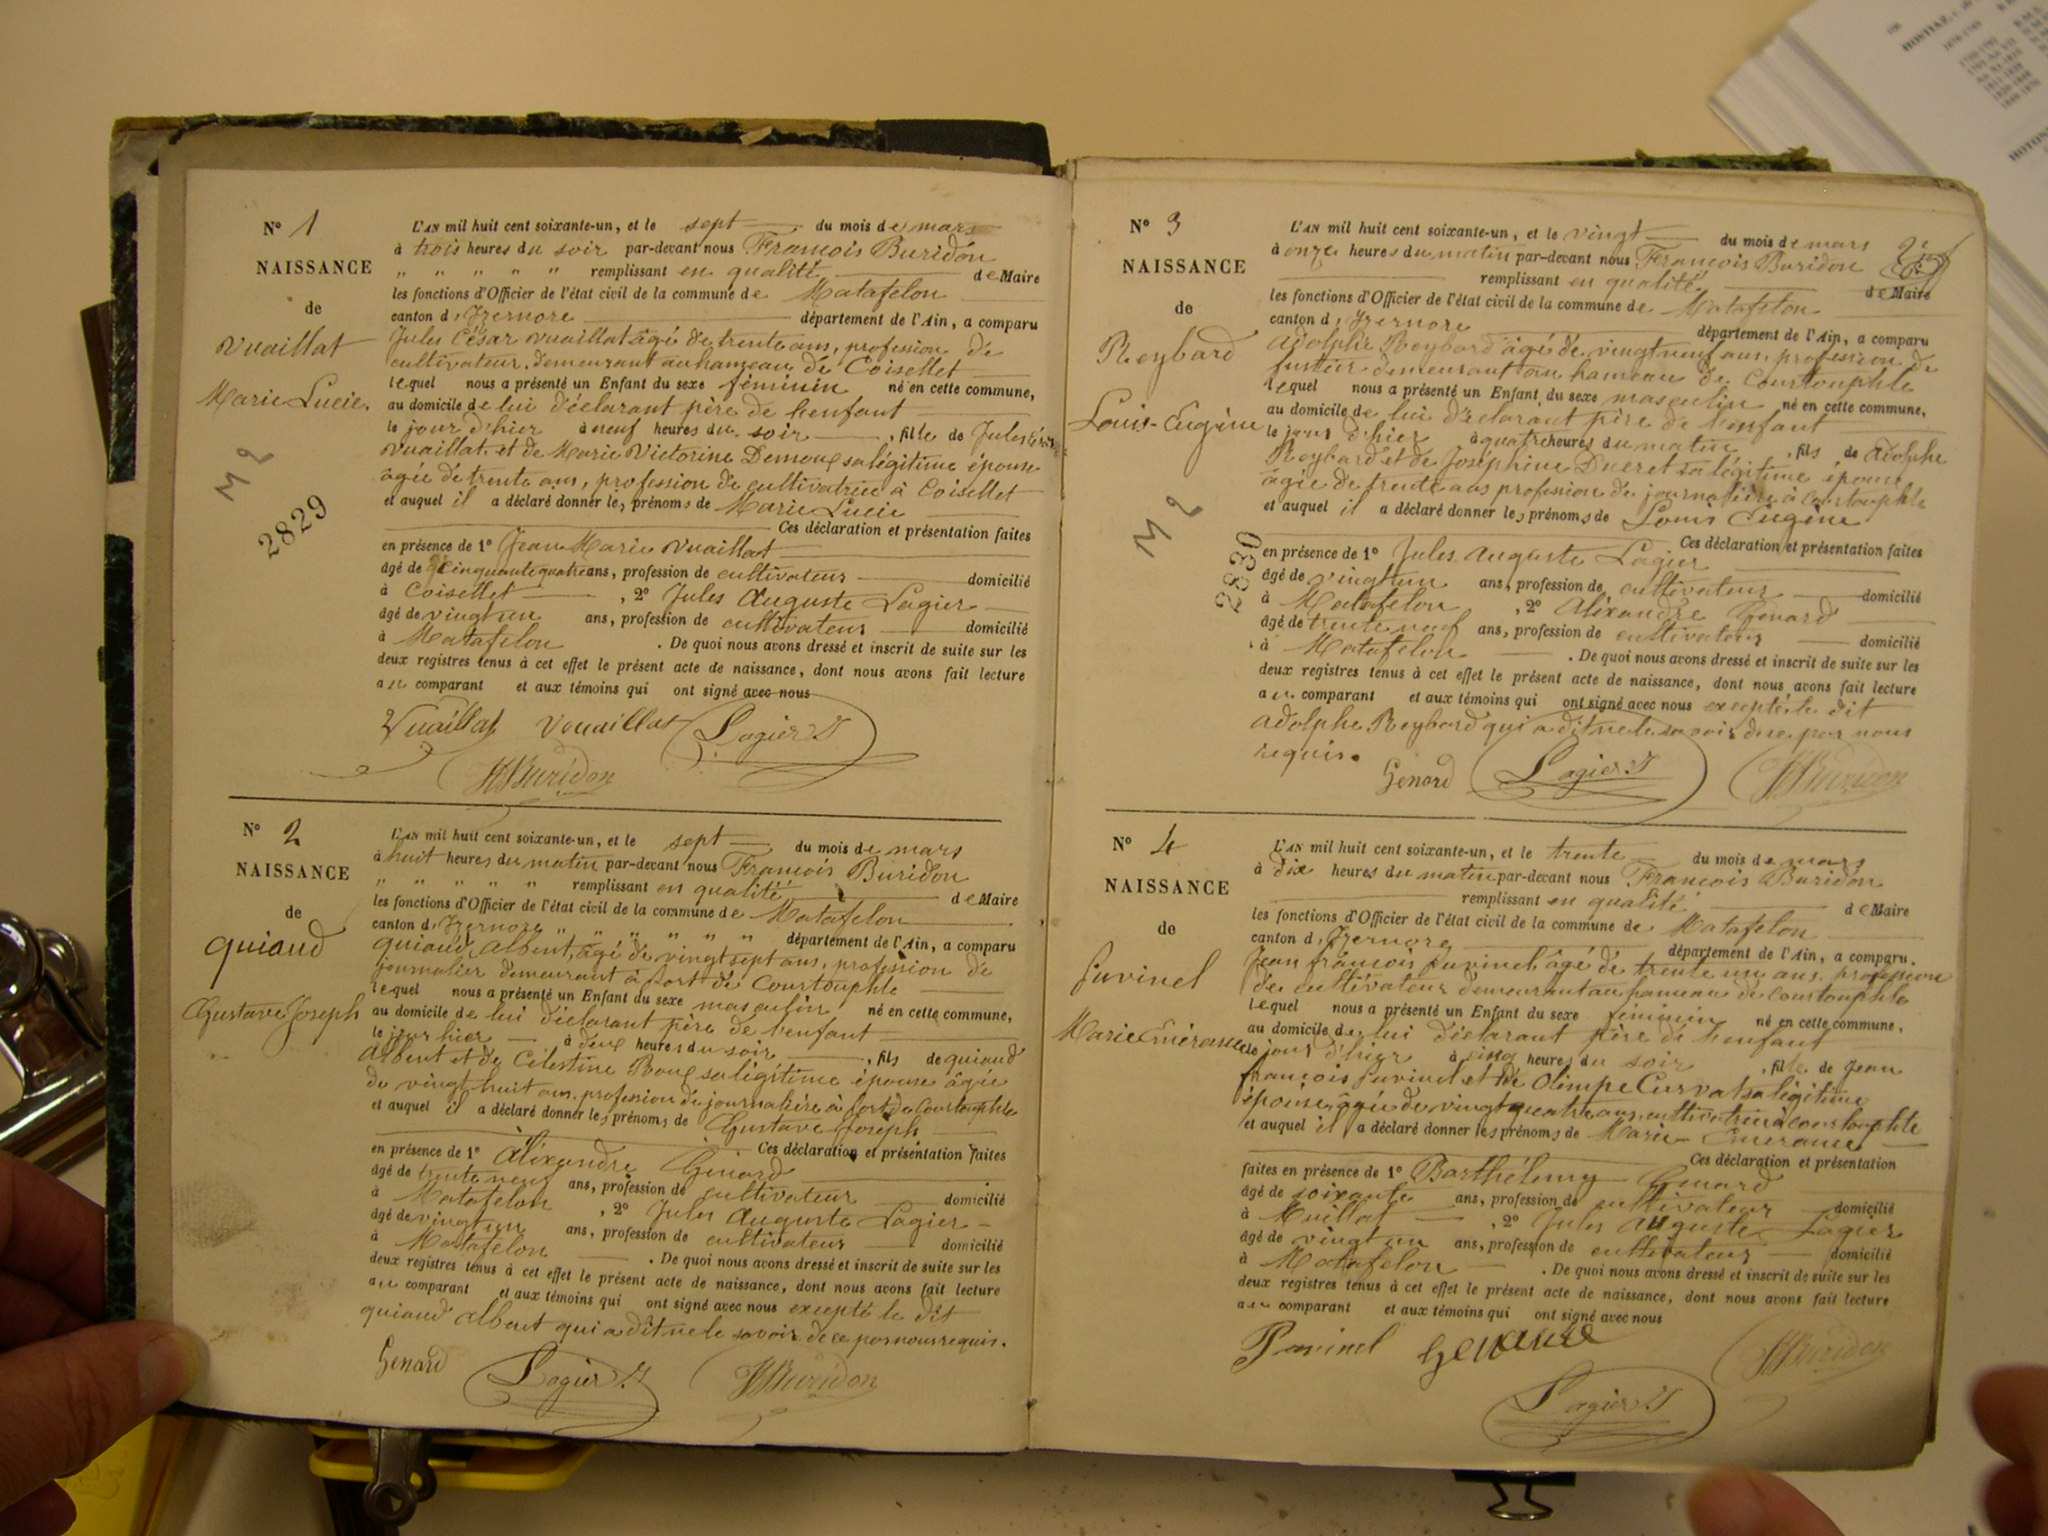 N° 1
NAISSANCE
de
Vuaillat
Marie Lucie.
M 2
2829
L'AN mil huit cent soixante-un, et le sept du mois de mars
à trois heures du soir par-devant nous François Buridon
" " " " " remplissant en qualité de Maire
les fonctions d'Officier de l'état civil de la commune de Matafelon
canton d'Izernore département de l'Ain, a comparu
Jules César Vuaillat âgé de trente ans, profession de
cultivateur, demeurant au hameau de Coisellet
lequel nous a présenté un Enfant du sexe féminin né en cette commune,
au domicile de lui déclarant père de l'enfant
le jour d'hier à neuf heures du soir, fille de Jules César
Vuaillat et de Marie Victorine sa légitime épouse
âgée de trente ans, profession de cultivatrice à Coisellet
et auquel il a déclaré donner les prénoms de Marie Lucie
Ces déclaration et présentation faites
en présence de 1° Jean Marie Vuaillat
âgé de cinquante quatre ans, profession de cultivateur domicilié
à Coisellet, 2° Jules Auguste Lagier
âgé de vingt un ans, profession de cultivateur domicilié
à Matafelon. De quoi nous avons dressé et inscrit de suite sur les
deux registres tenus à cet effet le présent acte de naissance, dont nous avons fait lecture
au comparant et aux témoins qui ont signé avec nous
Vuaillat Vouaillat Lagier J
Buridon
N° 2
NAISSANCE
de
quiaud
Gustave Joseph
L'AN mil huit cent soixante-un, et le sept du mois de mars
à huit heures du matin par-devant nous François Buridon
" " " " " remplissant en qualité de Maire
les fonctions d'Officier de l'état civil de la commune de Matafelon
canton d'Izernore " " " " " " département de l'Ain, a comparu
quiaud Albert, âgé de vingt sept ans, profession de
journalier demeurant à fort de Courtouphle
lequel nous a présenté un Enfant du sexe masculin né en cette commune,
au domicile de lui déclarant père de l'enfant
le jour hier à deux heures du soir, fils de quiaud
Albert et de Célestine Roux sa légitime épouse âgée
de vingt huit ans, profession de journalière à fort de Courtouphle
et auquel il a déclaré donner les prénoms de Gustave Joseph
Ces déclaration et présentation faites
en présence de 1° Alixandre Génard
âgé de trente neuf ans, profession de cultivateur domicilié
à Matafelon, 2° Jules Auguste Lagier
âgé de vingt un ans, profession de cultivateur domicilié
à Matafelon. De quoi nous avons dressé et inscrit de suite sur les
deux registres tenus à cet effet le présent acte de naissance, dont nous avons fait lecture
au comparant et aux témoins qui ont signé avec nous excepté le dit
quiaud Albert qui a dit ne le savoir de ce par nous requis.
Genard Lagier J Buridon
N° 3
NAISSANCE
de
Reybard
Louis-Eugène
M 2
2830
L'AN mil huit cent soixante-un, et le vingt du mois de mars
à onze heures du matin par-devant nous François Buridon
remplissant en qualité de Maire
les fonctions d'Officier de l'état civil de la commune de Matafelon
canton d'Izernore département de l'Ain, a comparu
Adolphe Reybard âgé de vingt neuf ans, profession de
fustier demeurant au hameau de Courtouphle
lequel nous a présenté un Enfant du sexe masculin né en cette commune,
au domicile de lui déclarant père de l'enfant
le jour d'hier à quatre heures du matin, fils de Adolphe
Reybard et de Joséphine Ducret sa légitime épouse
âgée de trente ans profession de journalière à Courtouphle
et auquel il a déclaré donner les prénoms de Louis Eugène
Ces déclaration et présentation faites
en présence de 1° Jules Auguste Lagier
âgé de vingt un ans, profession de cultivateur domicilié
à Matafelon, 2° Alixandre Génard
âgé de trente neuf ans, profession de cultivateur domicilié
à Matafelon. De quoi nous avons dressé et inscrit de suite sur les
deux registres tenus à cet effet le présent acte de naissance, dont nous avons fait lecture
au comparant et aux témoins qui ont signé avec nous excepté le dit
Adolphe Reybard qui a dit ne le savoir de ce par nous
requis.
Genard Lagier J Buridon
N° 4
NAISSANCE
de
Juvinel
L'AN mil huit cent soixante-un, et le trente du mois de mars
à dix heures du matin par-devant nous François Buridon
remplissant en qualité de Maire
les fonctions d'Officier de l'état civil de la commune de Matafelon
canton d'Izernore département de l'Ain, a comparu.
Jean françois Juvinel âgé de trente un ans, profession
de cultivateur demeurant au hameau de Courtouphle
lequel nous a présenté un Enfant du sexe féminin né en cette commune,
au domicile de lui déclarant père de l'enfant
le jour d'hier à cinq heures du soir, fille de Jean
françois Juvinel et de Olimpe Curvat sa légitime
épouse, âgée de vingt quatre ans, cultivatrice à Courtouphle
et auquel il a déclaré donner les prénoms de Marie
Ces déclaration et présentation
faites en présence de 1° Barthélemy Génard
âgé de soixante ans, profession de cultivateur domicilié
à, 2° Jules Auguste Lagier
âgé de vingt un ans, profession de cultivateur domicilié
à Matafelon. De quoi nous avons dressé et inscrit de suite sur les
deux registres tenus à cet effet le présent acte de naissance, dont nous avons fait lecture
au comparant et aux témoins qui ont signé avec nous
Genard Buridon
Lagier J